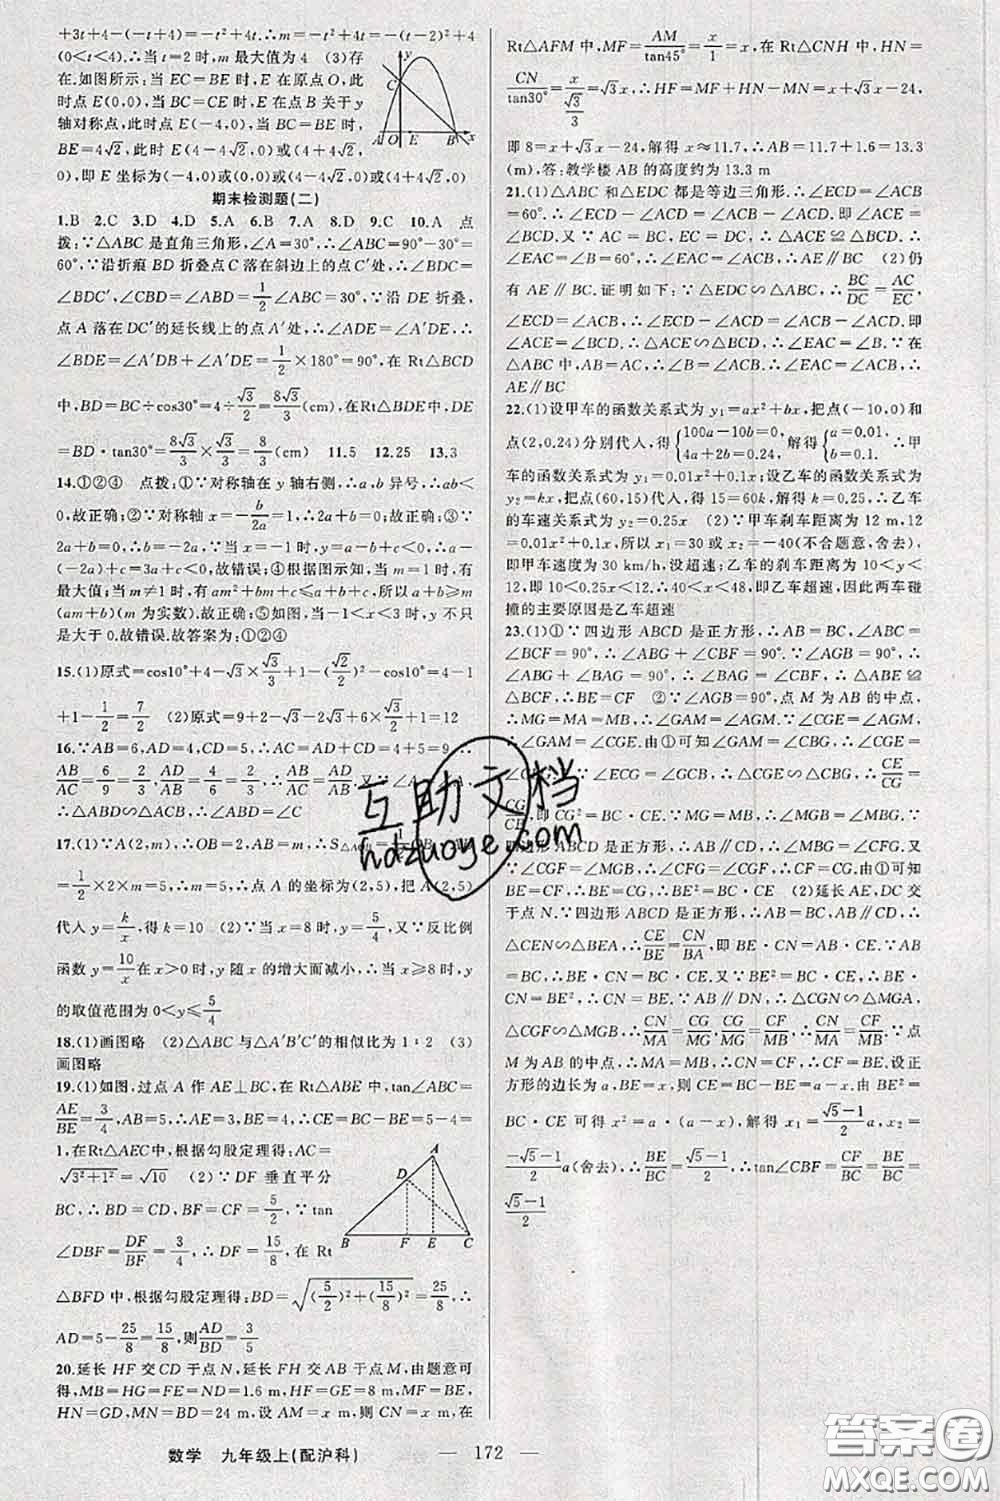 +3t+4-(-t+4)=-t²+4t.∴m=-t²+4t=-(t-2)²+4
(0<t<4).∴当 t=2 时,m 最大值为 4　(3)存
在,如图所示:当 EC=BE 时,E 在原点 O,此
时点 E(0,0),当 BC=CE 时,E 点 B 关于 y
轴对称点,此时点 E(-4,0),当 BC=BE 时,
BE=4√2,此时 E(4-4√2,0)或(4+4√2,
0),即 E 坐标为(-4,0)或(0,0)或(4-4√2,0)或(4+4√2,0)
y
C
A O E B x
期末检测题(二)
1.B 2.C 3.D 4.D 5.A 6.B 7.A 8.D 9.C 10.A 点
拨:∵△ABC 是直角三角形,∠A=30°,∴∠ABC=90°-30°=
60°,∵沿折痕 BD 折叠点 C 落在斜边上的点 C′处,∴∠BDC=
∠BDC′,∠CBD=∠ABD=1/2∠ABC=30°,∵沿 DE 折叠,
点 A 落在 DC′的延长线上的点 A′处,∴∠ADE=∠A′DE,∴
∠BDE=∠A′DB+∠A′DE=1/2×180°=90°,在 Rt△BCD
中,BD=BC÷cos30°=4÷√3/2=8√3/3(cm),在Rt△BDE中,DE
=BD·tan30°=8√3/3×√3/3=8/3(cm)　11.5　12.25　13.3
14.①②④　点拨:①∵对称轴在 y 轴右侧,∴a,b 异号,∴ab<
0,故正确;②∵对称轴 x=-b/2a=1,∴2a+b=0,故正确;③∵
2a+b=0,∴b=-2a,∵当 x=-1 时,y=a-b+c<0,∴a-
(-2a)+c=3a+c<0,故错误;④根据图示知,当 m=1 时,有
最大值;当 m≠1 时,有 am²+bm+c≤a+b+c,所以 a+b≥m
(am+b)(m 为实数).故正确;⑤如图,当-1<x<3 时,y 不只
是大于 0.故错误.故答案为:①②④
15.(1)原式=cos10°+4-√3×√3/3+1-(√2/2)²-cos10°=4-1
+1-1/2=7/2　(2)原式=9+2-√3-2√3+6×√3/2+1=12
16.∵AB=6,AD=4,CD=5,∴AC=AD+CD=4+5=9,∴
AB/AC=6/9=2/3,AD/AB=4/6=2/3,∴AB/AC=AD/AB.又∵∠A=∠A,
∴△ABD∽△ACB,∴∠ABD=∠C
17.(1)∵A(2,m),∴OB=2,AB=m,∴S△AOB=
=1/2×2×m=5,∴m=5,∴点 A 的坐标为(2,5),把 A(2,5)
代入 y=k/x,得 k=10　(2)∵当 x=8 时,y=5/4,又∵反比例
函数 y=10/x在 x>0 时,y 随 x 的增大而减小,∴当 x≥8 时,y
的取值范围为 0<y≤5/4
18.(1)画图略　(2)△ABC 与△A′B′C′的相似比为 1∶2　(3)
画图略
19.(1)如图,过点 A 作 AE⊥BC,在 Rt△ABE 中,tan∠ABC=
AE/BE=3/4,AB=5,∴AE=3,BE=4,∴CE=BC-BE=5-4=
1,在 Rt△AEC中,根据勾股定理得:AC=
√(3²+1²)=√10　(2)∵DF 垂直平分
BC,∴BD=CD,BF=CF=5/2,∵tan
∠DBF=DF/BF=3/4,∴DF=15/8,在 Rt
△BFD 中,根据勾股定理得:BD=√((5/2)²+(15/8)²)=25/8,∴
AD=5-25/8=15/8,则AD/BD=3/5
A
D
B F E C
20.延长 HF 交 CD 于点 N,延长 FH 交 AB 于点 M,由题意可
得,MB=HG=FE=ND=1.6 m,HF=GE=8 m,MF=BE,
HN=GD,MN=BD=24 m,设 AM=x m,则 CN=x m,在
Rt△AFM 中,MF=AM/tan45°=x/1=x,在 Rt△CNH 中,HN=
CN/tan30°=x/(√3/3)=√3x,∴HF=MF+HN-MN=x+√3x-24,
即 8=x+√3x-24,解得 x≈11.7,∴AB=11.7+1.6=13.3
(m).答:教学楼 AB 的高度约为 13.3 m
21.(1)△ABC 和△EDC 都是等边三角形.∴∠ECD=∠ACB
=60°.∴∠ECD-∠ACD=∠ACB-∠ACD.即∠ACE=
∠BCD.又∵AC=BC,EC=DC.∴△ACE≌△BCD.∴
∠EAC=∠B=60°,∴∠EAC=∠ACB.∴AE∥BC　(2)仍
有 AE∥BC.证明如下:∵△EDC∽△ABC,∴BC/DC=AC/EC,
∠ECD=∠ACB,∴∠ECD-∠ACD=∠ACB-∠ACD.即
∠ACE=∠BCD.∴△AEC∽△BDC.∴∠EAC=∠B.∵在
△ABC 中,AB=AC,∴∠ACB=∠B.∴∠EAC=∠ACB,∴
AE∥BC
22.(1)设甲车的函数关系式为 y₁=ax²+bx,把点(-10,0)和
点(2,0.24)分别代人,得{100a-10b=0, 4a+2b=0.24,解得{a=0.01, b=0.1.∴甲
车的函数关系式为 y₁=0.01x²+0.1x;设乙车的函数关系式为
y₂=kx,把点(60,15)代人,得 15=60k,解得 k=0.25,∴乙车
的车速关系式为 y₂=0.25x　(2)∵甲车刹车距离为 12 m,12
=0.01x²+0.1x,所以 x₁=30或 x₂=-40(不合题意,舍去),
即甲车速度为 30 km/h,没超速;乙车的刹车距离为 10<y<
12,即 10<0.25x<12.∴40<x<48,即乙车超速,因此两车碰
撞的主要原因是乙车超速
23.(1)①∵四边形 ABCD 是正方形,∴AB=BC,∠ABC=
∠BCF=90°,∴∠ABG+∠CBF=90°.∵∠AGB=90°,∴
∠ABG+∠BAG=90°,∴∠BAG=∠CBF,∴△ABE≌
△BCF,∴BE=CF　②∵∠AGB=90°,点 M 为 AB 的中点,
∴MG=MA=MB,∴∠GAM=∠AGM.∵∠CGE=∠AGM,
∴∠GAM=∠CGE.由①可知∠GAM=∠CBG,∴∠CGE=
∠CBG.∵∠ECG=∠GCB,∴△CGE∽△CBG,∴CE/CG=
CG/CB,即 CG²=BC·CE.∵MG=MB,∴∠MGB=∠MBG.∵
四边形 ABCD 是正方形,∴AB∥CD,∴∠MBG=∠CFG.又∵
∠CGF=∠MGB,∴∠CFG=∠CGF,∴CF=CG.由①可知
BE=CF,∴BE=CG,∴BE²=BC·CE　(2)延长 AE,DC 交
于点 N.∵四边形 ABCD 是正方形,∴AB∥CD,∴
△CEN∽△BEA,∴CE/BE=CN/BA,即 BE·CN=AB·CE.∵AB=
BC,∴BE·CN=BC·CE.又∵BE²=BC·CE,∴BE·
CN=BE²,∴CN=BE.∵AB∥DN,∴△CGN∽△MGA,
△CGF∽△MGB,∴CN/MA=CG/MG,CG/MG=CF/MB,∴CN/MA=CF/MB.∵点
M 为 AB 的中点,∴MA=MB,∴CN=CF,∴CF=BE.设正
方形的边长为 a,BE=x,则 CE=BC-BE=a-x.由 BE²=
BC·CE 可得 x²=a·(a-x).解得 x₁=(√5-1)/2 a,x₂=
(-√5-1)/2 a(舍去),∴BE/BC=(√5-1)/2,∴tan∠CBF=CF/BC=BE/BC=
(√5-1)/2
数学　九年级上(配沪科)
— 172 —
互助文档
hdzuoye.com
答案圈
MXQE.COM